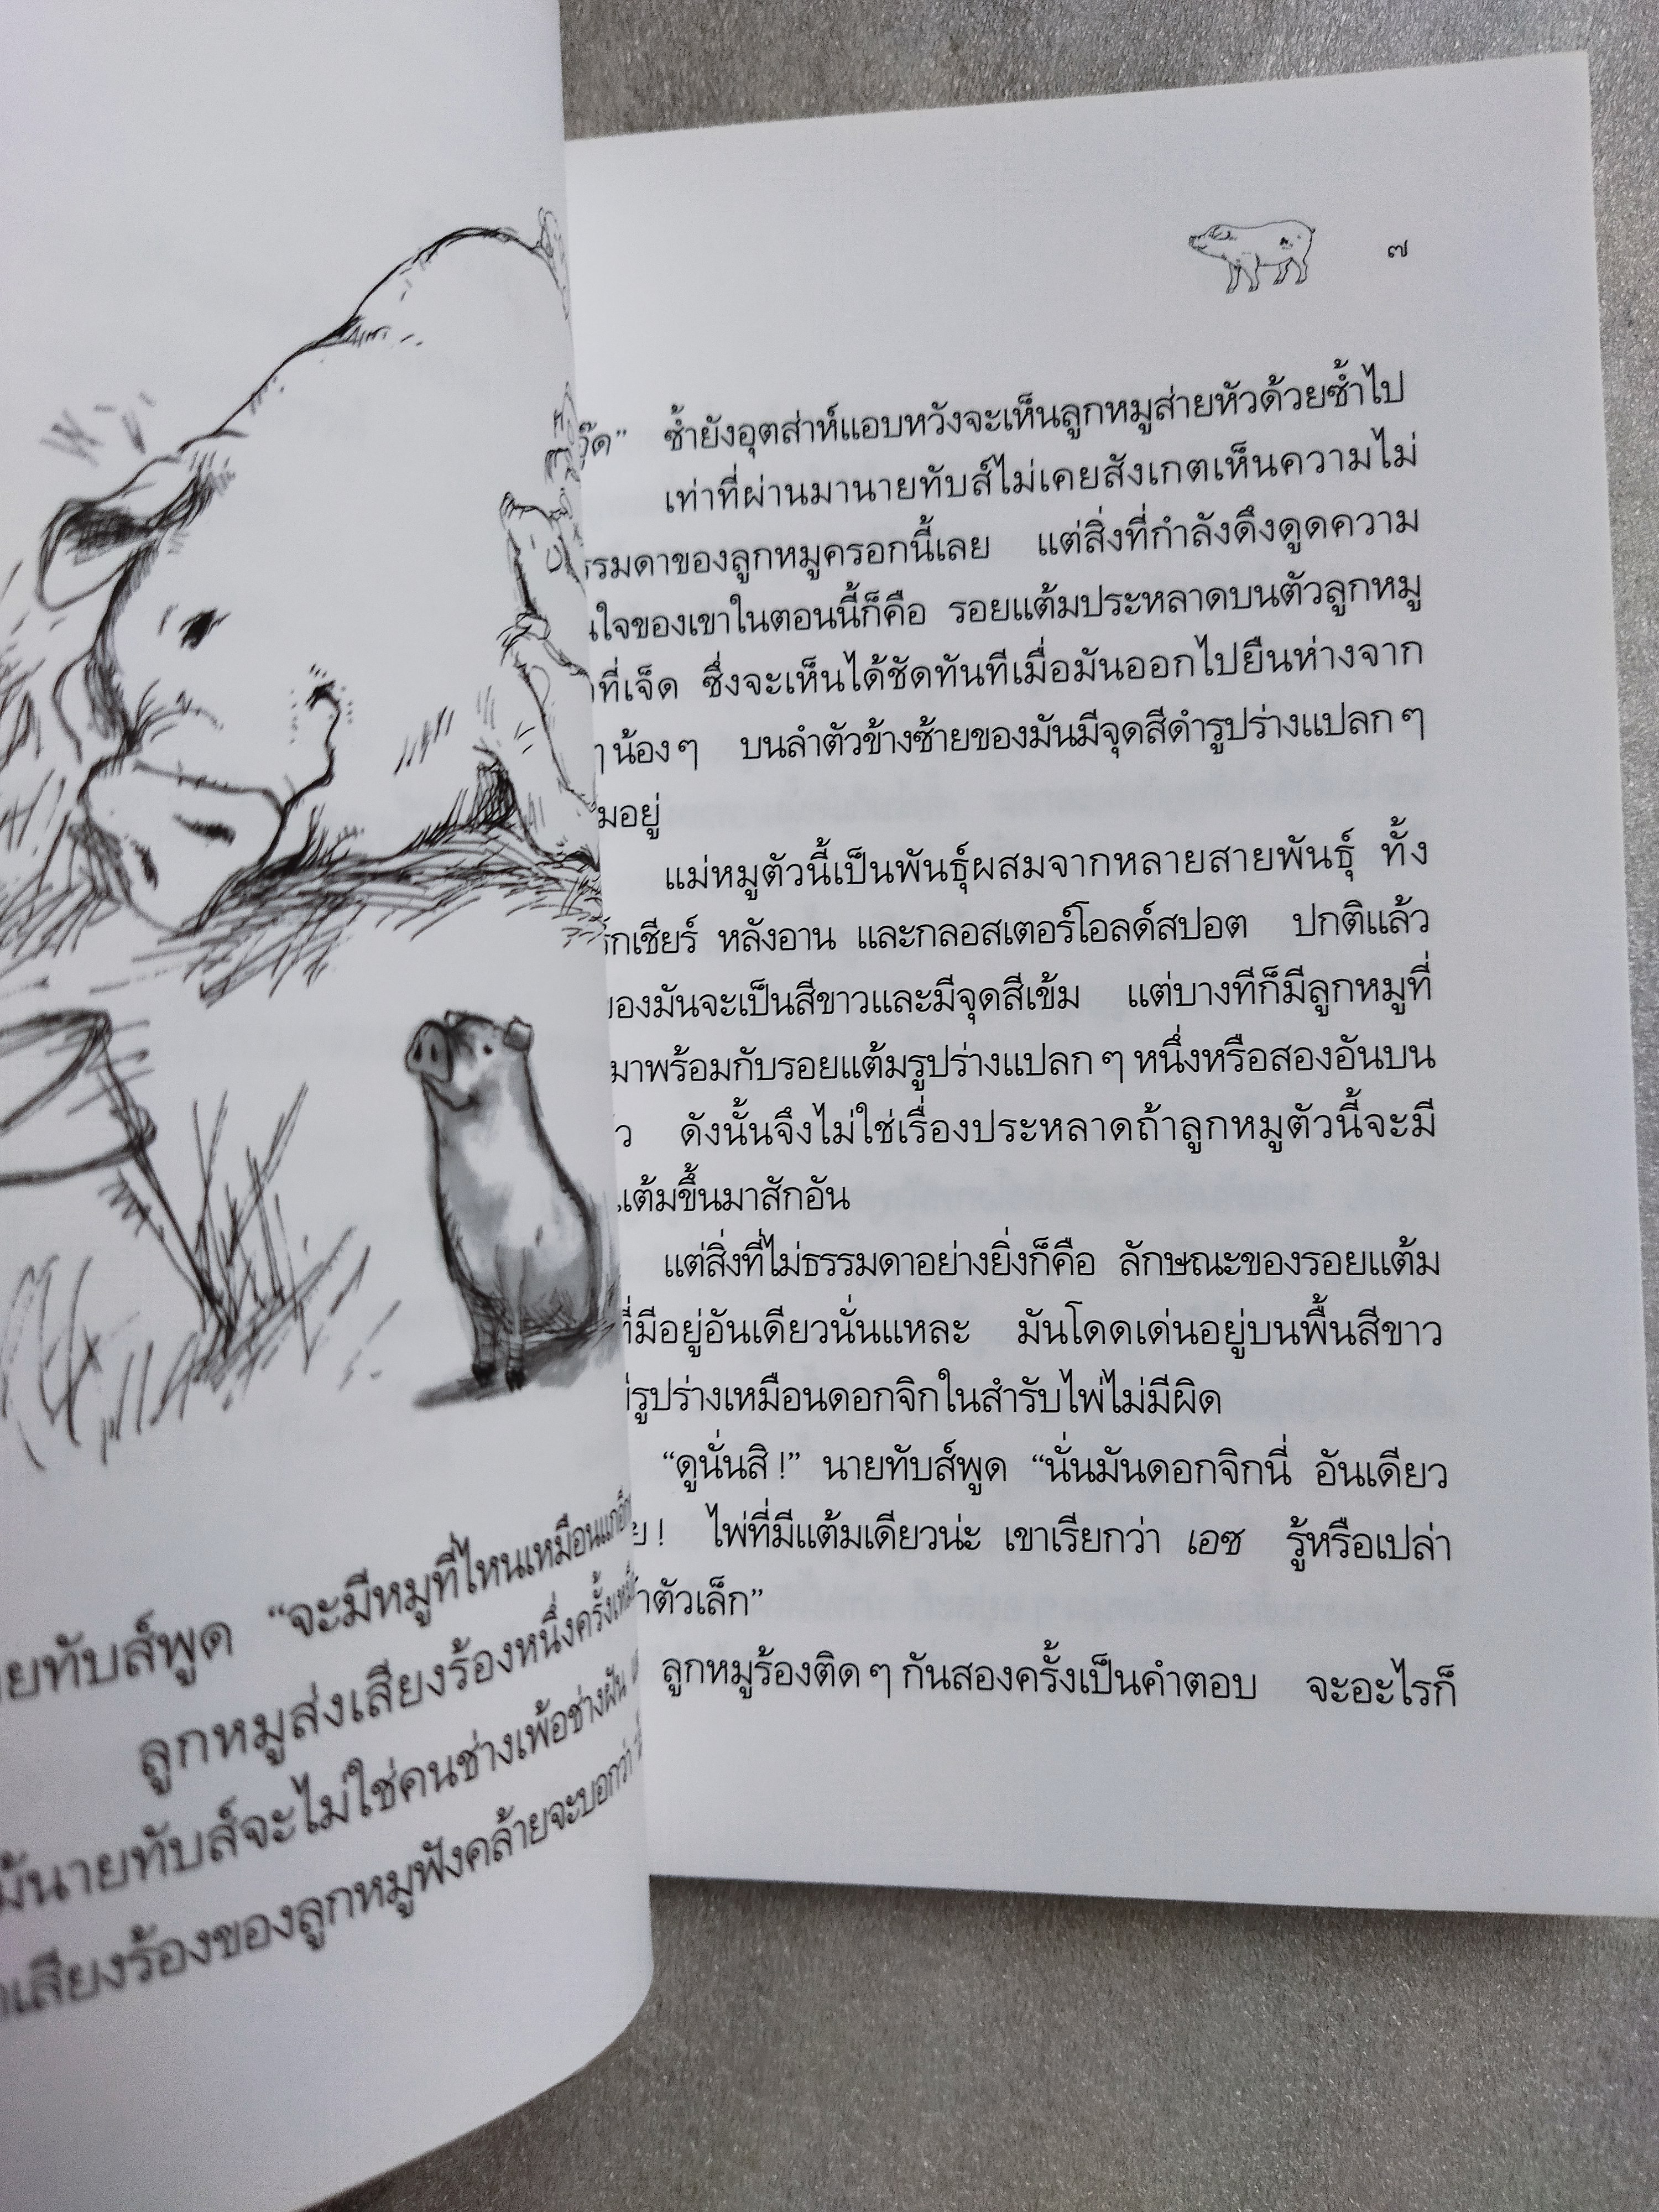 พูด “จะมีหมูที่ไหนเหมือนแกอีก
ลูกหมูส่งเสียงร้องหนึ่งครั้ง
นายทับส์จะไม่ใช่คนช่างเพ้อช่างฝัน
เสียงร้องของลูกหมูฟังคล้ายจะบอกว่า
๗
ซ้ำยังอุตส่าห์แอบหวังจะเห็นลูกหมูส่ายหัวด้วยซ้ำไป
เท่าที่ผ่านมานายทับส์ไม่เคยสังเกตเห็นความไม่
ของลูกหมูครอกนี้เลย แต่สิ่งที่กำลังดึงดูดความ
ใจของเขาในตอนนี้ก็คือ รอยแต้มประหลาดบนตัวลูกหมู
ที่เจ็ด ซึ่งจะเห็นได้ชัดทันทีเมื่อมันออกไปยืนห่างจาก
น้อง ๆ บนลำตัวข้างซ้ายของมันมีจุดสีดำรูปร่างแปลก ๆ
อยู่
แม่หมูตัวนี้เป็นพันธุ์ผสมจากหลายสายพันธุ์ ทั้ง
หลังอาน และกลอสเตอร์โอลด์สปอต ปกติแล้ว
ของมันจะเป็นสีขาวและมีจุดสีเข้ม แต่บางทีก็มีลูกหมูที่
มาพร้อมกับรอยแต้มรูปร่างแปลก ๆ หนึ่งหรือสองอันบน
ดังนั้นจึงไม่ใช่เรื่องประหลาดถ้าลูกหมูตัวนี้จะมี
แต้มขึ้นมาสักอัน
แต่สิ่งที่ไม่ธรรมดาอย่างยิ่งก็คือ ลักษณะของรอยแต้ม
ที่มีอยู่อันเดียวนั่นแหละ มันโดดเด่นอยู่บนพื้นสีขาว
รูปร่างเหมือนดอกจิกในสำรับไพ่ไม่มีผิด
“ดูนั่นสิ !” นายทับส์พูด “นั่นมันดอกจิกนี่ อันเดียว
ไพ่ที่มีแต้มเดียวน่ะ เขาเรียกว่า เอซ รู้หรือเปล่า
ตัวเล็ก”
ลูกหมูร้องติด ๆ กันสองครั้งเป็นคำตอบ จะอะไรก็